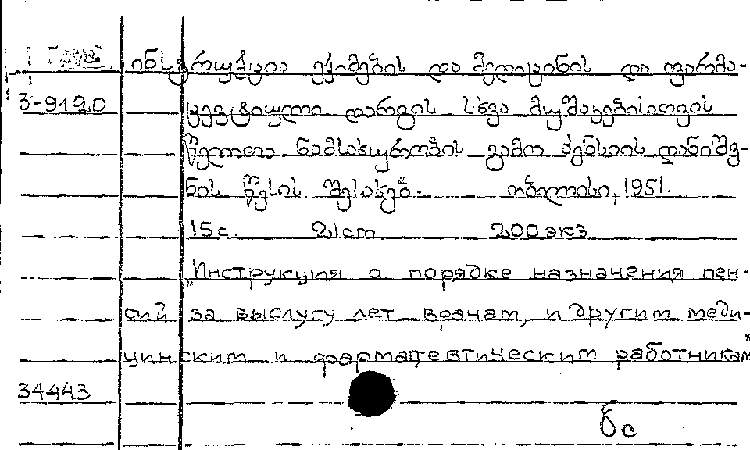 ინსტრუქცია ექიმების და მედიცინის და ფარმა-
3-9120 ცევტიული დარგის სხვა მუშაკებისათვის
წელთა ნამსახურობის გამო პენსიის დანიშვ-
ნის წესის შესახებ. თბილისი, 1951.
15 с. 21 cm 200 экз
„Инструкция о порядке назначения пен-
сий за выслугу лет врачам, и другим меди-
цинским и фармацевтическим работникам"
34443